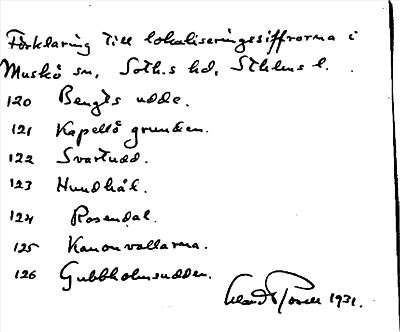 Förklaring till lokaliseringssiffrorna i
Muskö sn, Soth.s hd, Sthlms l.
120 Bengts udde.
121 Kapellö grunden.
122 Svartudd.
123 Hundhål.
124 Rosendal.
125 Kanonvallarna.
126 Gubbholmsudden.
1931.